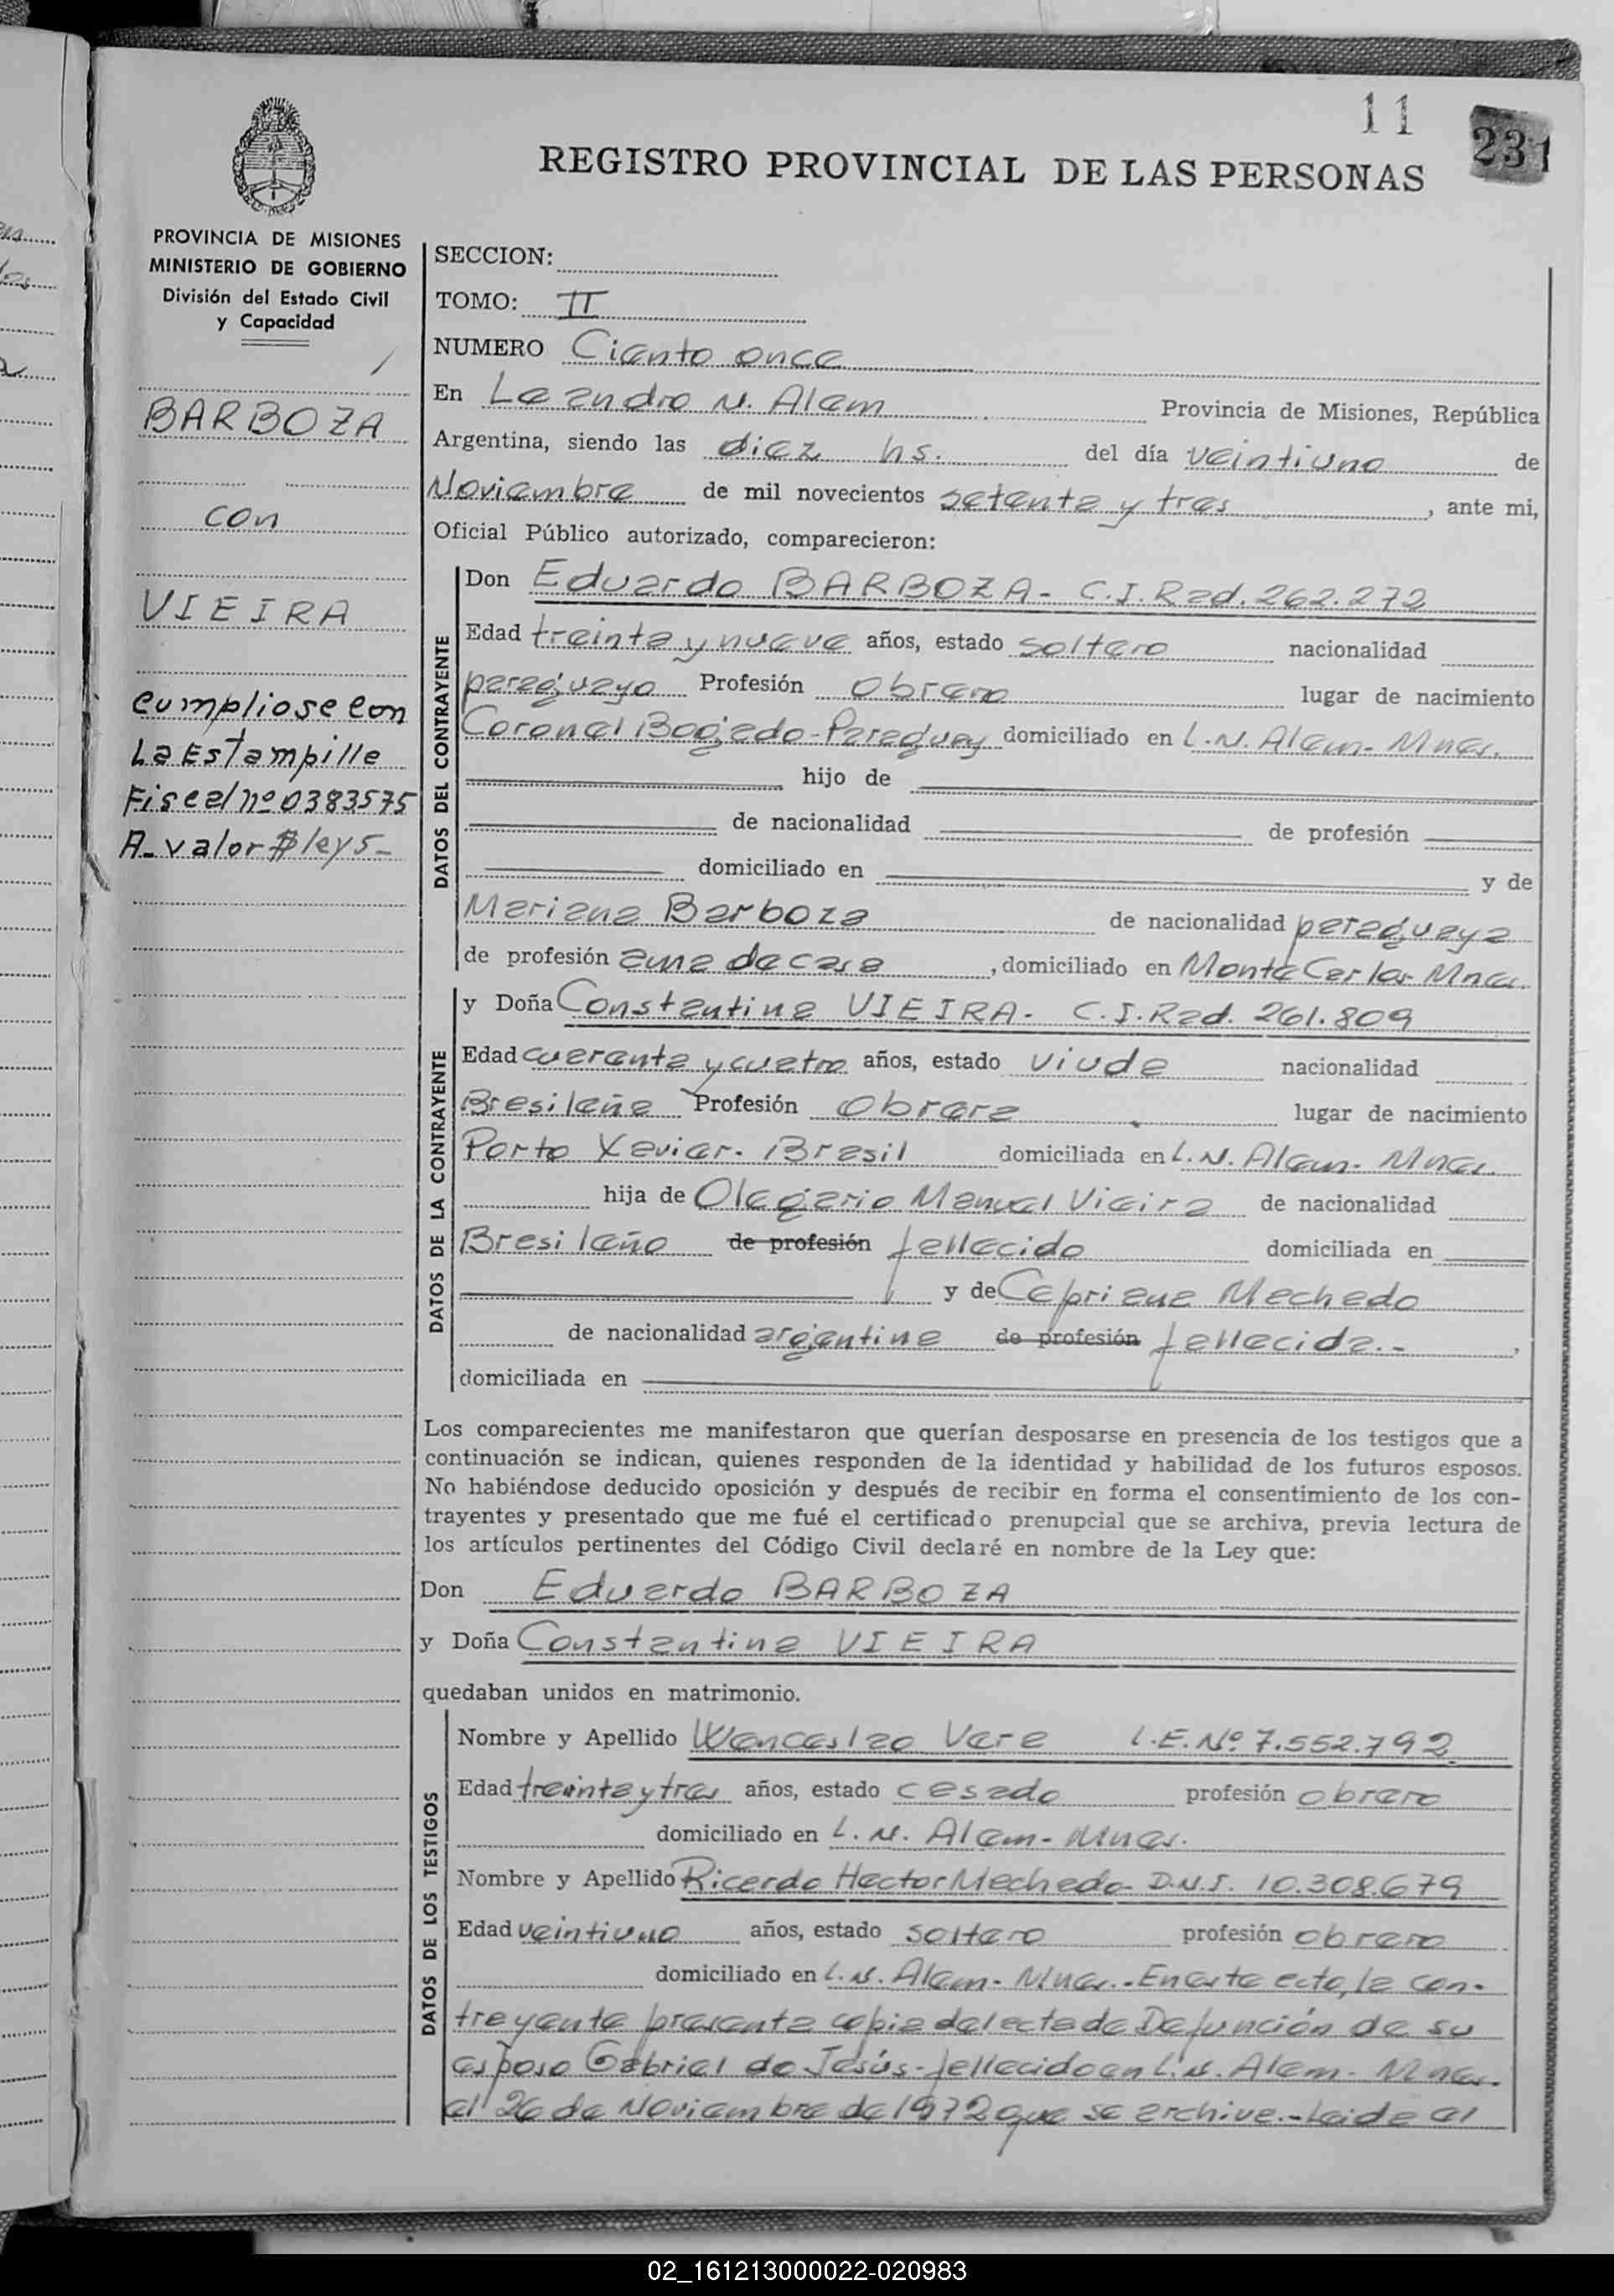 11
231
REGISTRO PROVINCIAL DE LAS PERSONAS
PROVINCIA DE MISIONES
MINISTERIO DE GOBIERNO
División del Estado Civil
y Capacidad
BARBOZA
con
VIEIRA
Cumpliose con
La Estampilla
Fiscal nº 0383575
A- valor $ ley 5-
SECCION:
TOMO: II
NUMERO Ciento once
En Leandro N. Alem Provincia de Misiones, República
Argentina, siendo las diez hs. del día veintiuno de
Noviembre de mil novecientos setenta y tres, ante mi,
Oficial Público autorizado, comparecieron:
DATOS DEL CONTRAYENTE
Don Eduardo BARBOZA- C.I.Rad. 262.272
Edad treinta y nueve años, estado soltero nacionalidad
paraguayo Profesión obrero lugar de nacimiento
Coronel Bogado-Paraguay domiciliado en L.N. Alem- Mnes.
hijo de
de nacionalidad de profesión
domiciliado en y de
Mariana Barboza de nacionalidad paraguaya
de profesión ama de casa, domiciliado en Monte Carlos- Mnes.
DATOS DE LA CONTRAYENTE
y Doña Constantina VIEIRA- C.I.Rad. 261.809
Edad cuarenta y cuatro años, estado viuda nacionalidad
Brasileña Profesión obrera lugar de nacimiento
Porto Xavier- Brasil domiciliada en L.N. Alem- Mnes.
hija de Olegario Manuel Vieira de nacionalidad
Brasileño de profesión fallecido domiciliada en
y de Capriana Machado
de nacionalidad argentina de profesión fallecida.-,
domiciliada en
Los comparecientes me manifestaron que querían desposarse en presencia de los testigos que a
continuación se indican, quienes responden de la identidad y habilidad de los futuros esposos.
No habiéndose deducido oposición y después de recibir en forma el consentimiento de los con-
trayentes y presentado que me fué el certificado prenupcial que se archiva, previa lectura de
los artículos pertinentes del Código Civil declaré en nombre de la Ley que:
Don Eduardo BARBOZA
y Doña Constantina VIEIRA
quedaban unidos en matrimonio.
DATOS DE LOS TESTIGOS
Nombre y Apellido Wenceslao Vera L.E.Nº 7.552.792
Edad treinta y tres años, estado casado profesión obrero
domiciliado en L. N. Alem- Mnes.
Nombre y Apellido Ricardo Hector Machado- D.N.I. 10.308.679
Edad veintiuno años, estado soltero profesión obrero
domiciliado en L.N. Alem- Mnes.-En este acto, la con-
trayente presenta copia del acta de Defunción de su
esposo Gabriel do Jesús- fallecido en L.N. Alem- Mnes-
el 26 de Noviembre de 1972 que se archiva.-Leida el
02_161213000022-020983